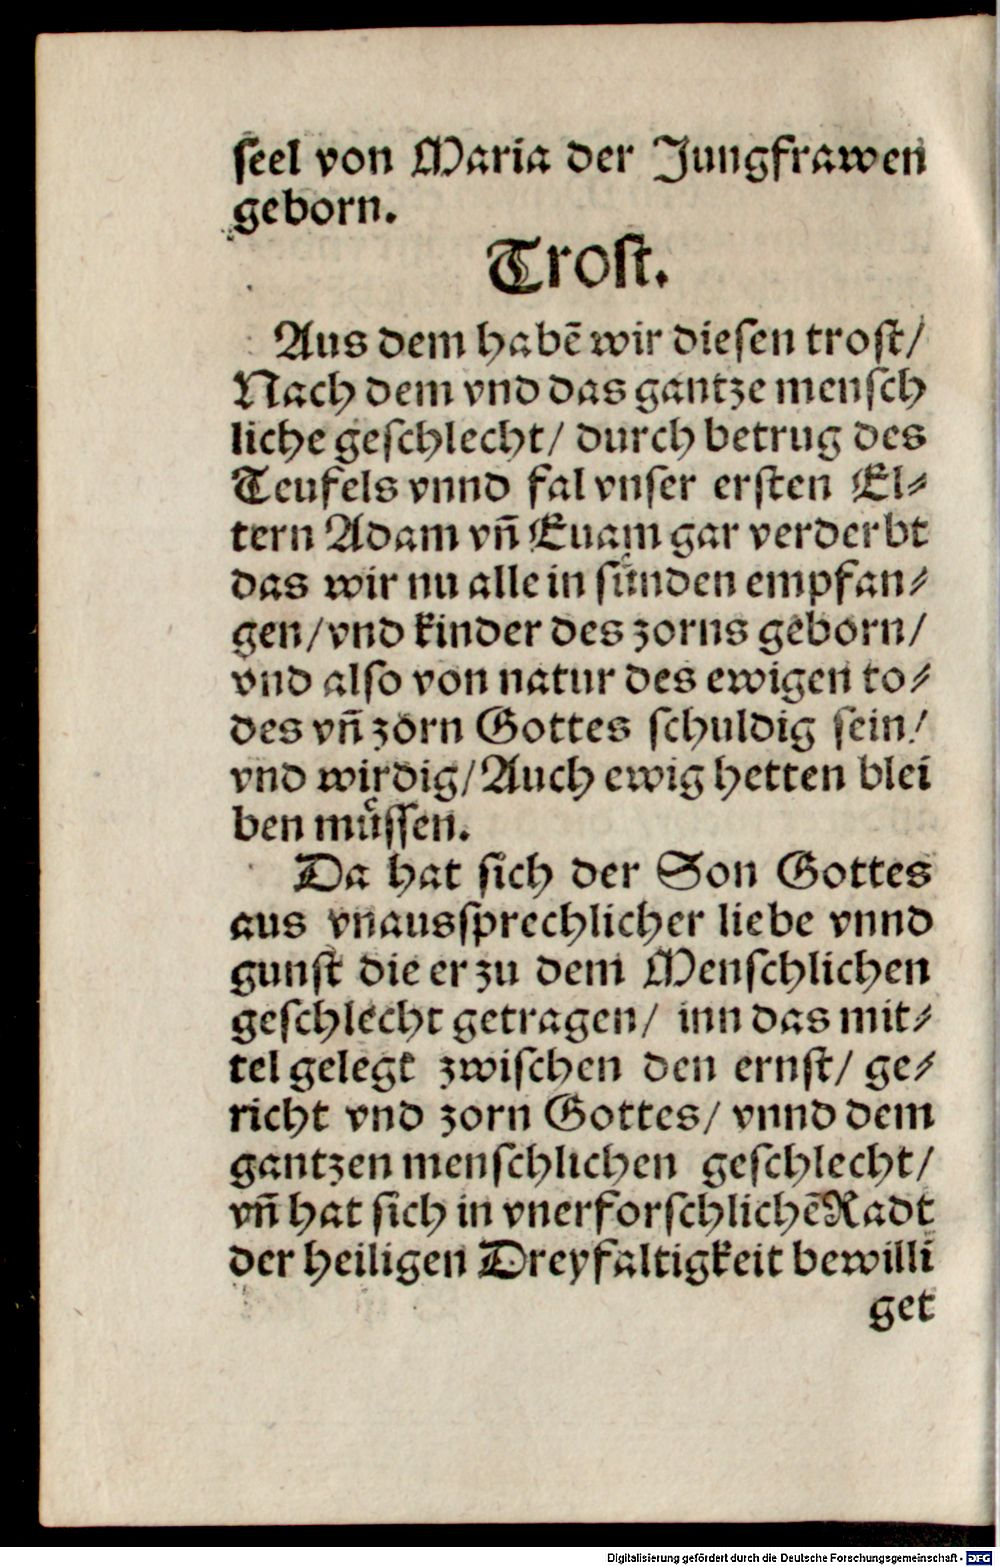 ſeel von Maria der Jungfrawen
geborn.
Troſt.
Aus dem habẽ wir dieſen troſt/
Nach dem vnd das gantze menſch
liche geſchlecht/ durch betrug des
Teufels vnnd fal vnſer erſten El⸗
tern Adam vñ Euam gar verderbt
das wir nu alle in ſuͤnden empfan⸗
gen/vnd kinder des zorns geborn/
vnd alſo von natur des ewigen to⸗
des vñ zorn Gottes ſchuldig ſein/
vnd wirdig/Auch ewig hetten blei
ben muͤſſen.
Da hat ſich der Son Gottes
aus vnausſprechlicher liebe vnnd
gunſt die er zu dem Menſchlichen
geſchlecht getragen/ inn das mit⸗
tel gelegt zwiſchen den ernſt/ ge⸗
richt vnd zorn Gottes/ vnnd dem
gantzen menſchlichen geſchlecht/
vñ hat ſich in vnerforſchlichẽ Radt
der heiligen Dreyfaltigkeit bewilli
get
Digitalisierung gefördert durch die Deutsche Forschungsgemeinschaft - DFG